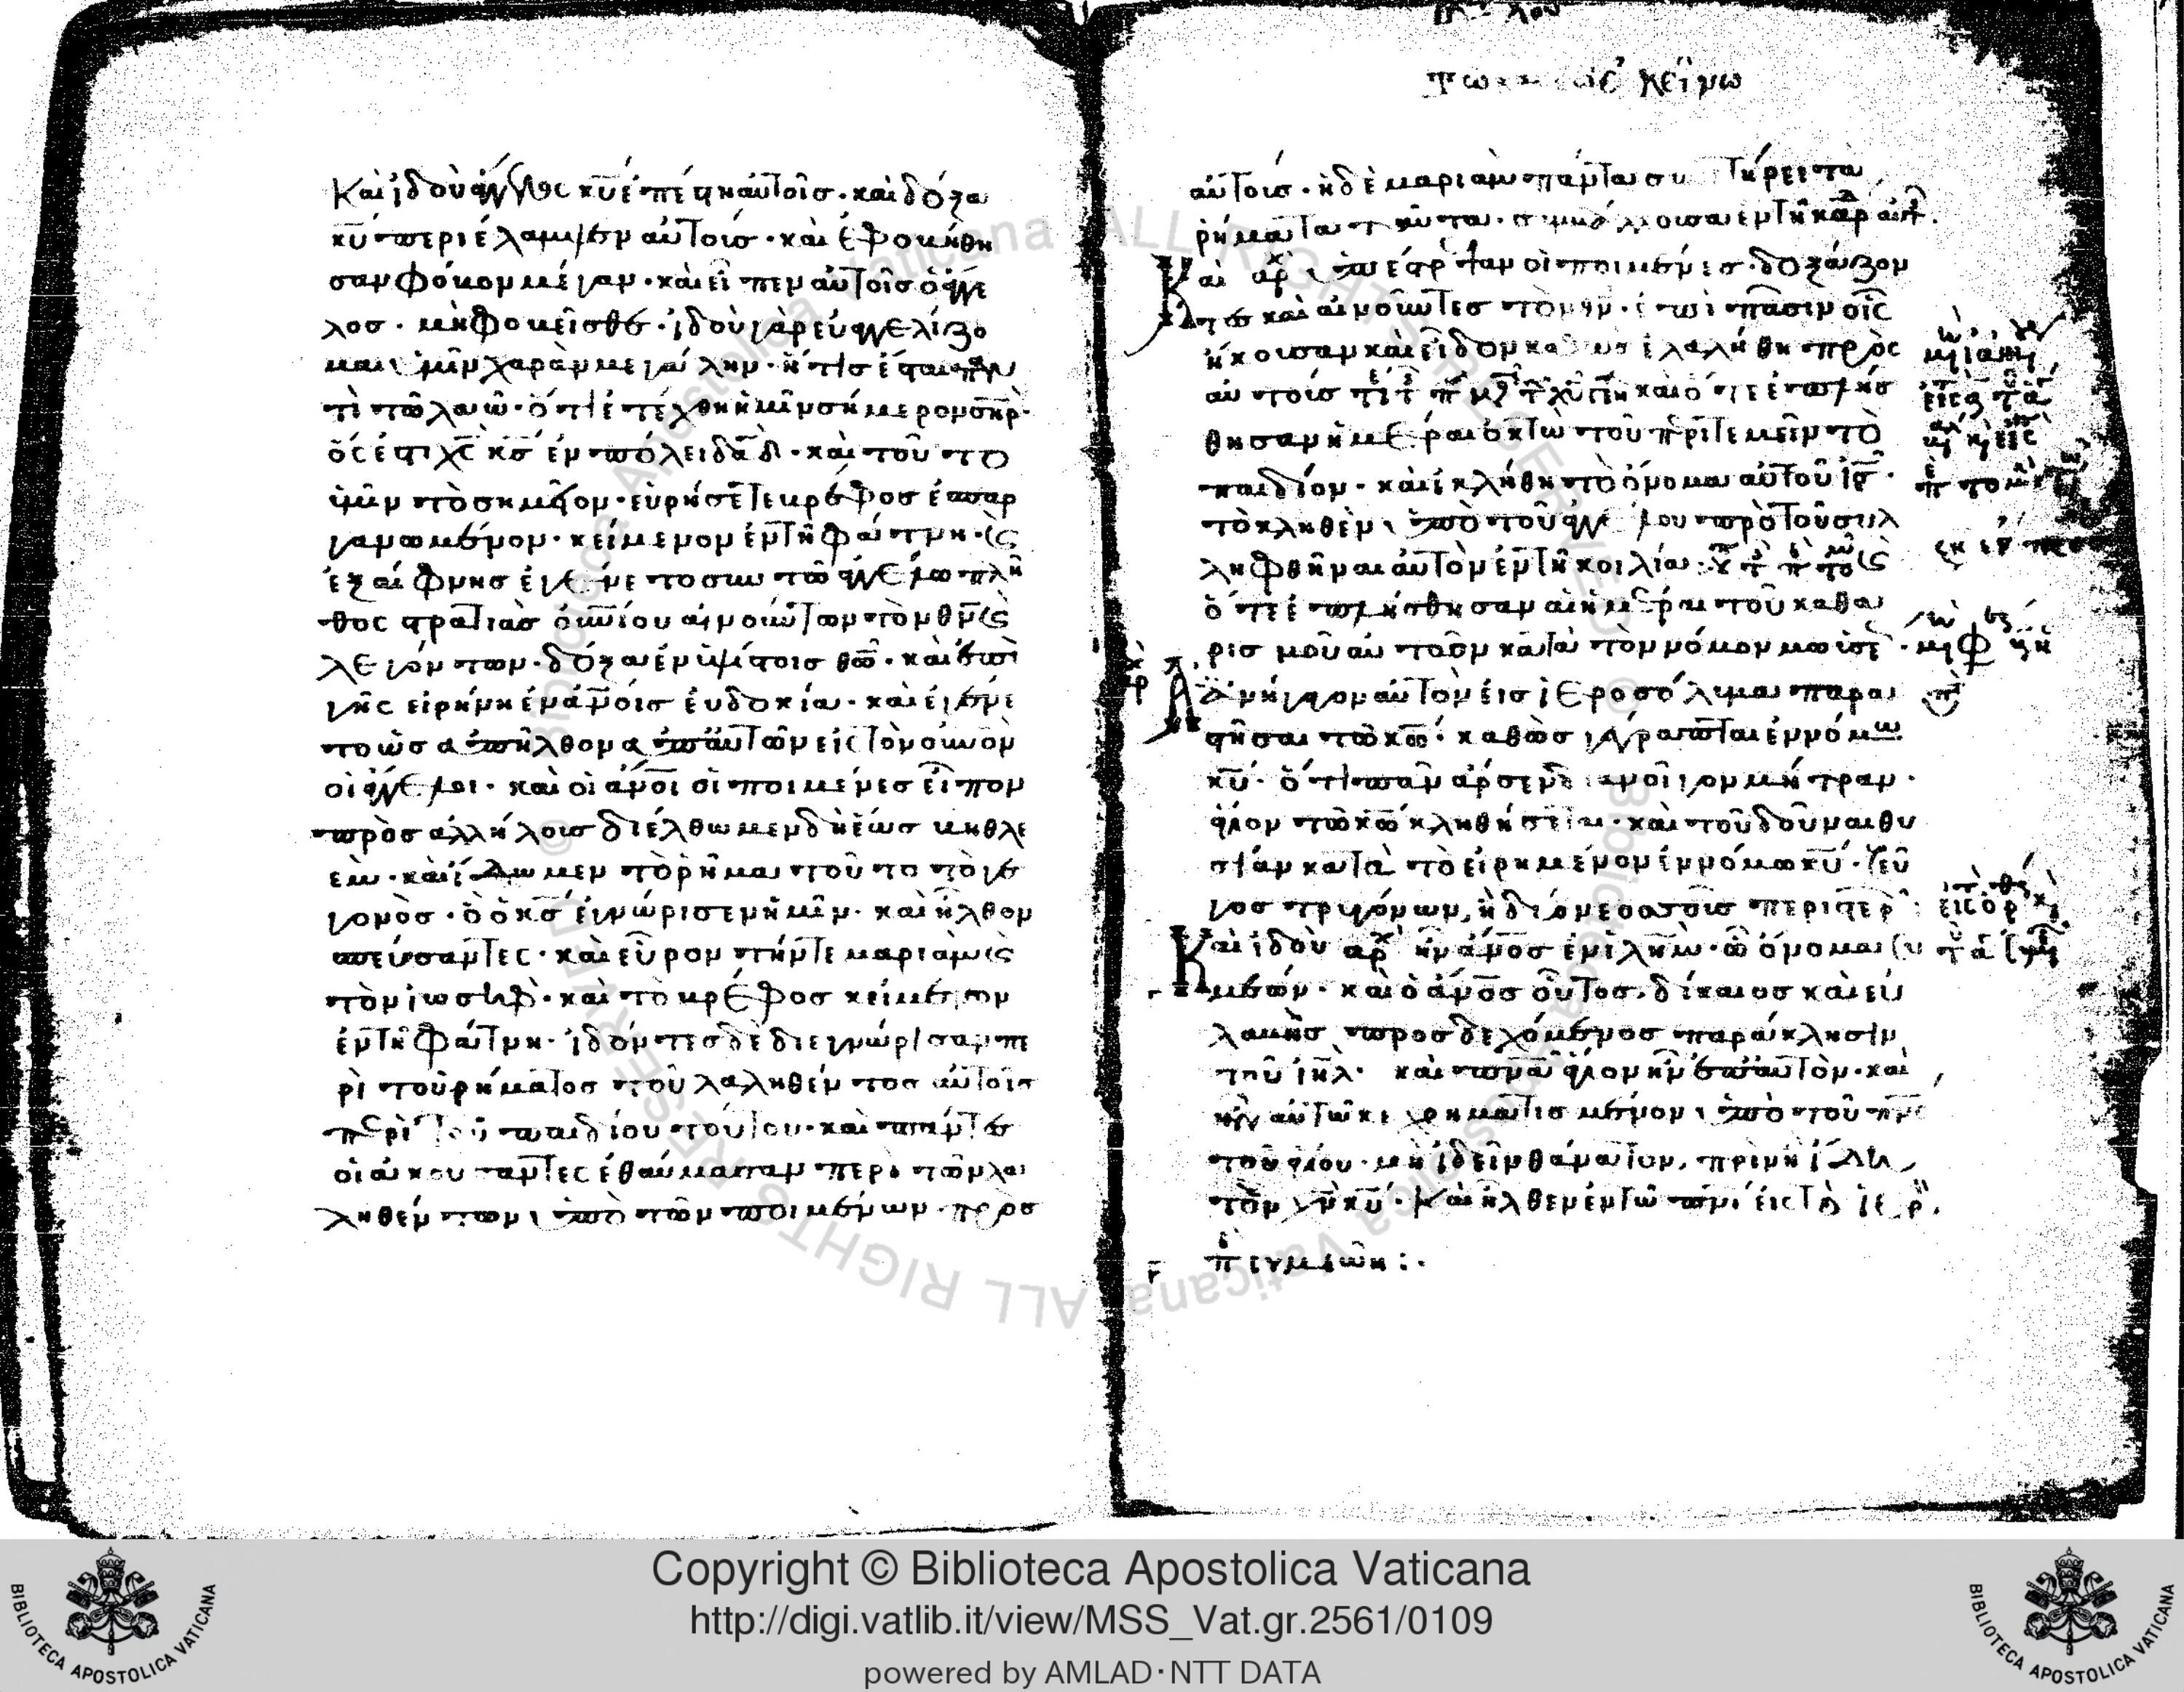 Καὶ ἰδοὺ ἄγγελος κυ ἐπέστη αὐτοῖς · καὶ δόξα
κυ περιέλαμψεν αὐτοῖς · καὶ ἐφοβήθη
σαν φόβον μέγαν · καὶ εἶπεν αὐτοῖς ὁ ἄγγε
λος · μὴ φοβεῖσθε · ἰδοὺ γὰρ εὐαγγελίζο
μαι ὑμῖν χαρὰν μεγάλην · ἥτις ἔσται παν
τὶ τῷ λαῷ · ὅτι ἐτέχθη ἡμῖν σήμερον σηρ ·
ὅς ἐστι χς κς ἐν πόλει δαδ · καὶ τοῦτο
ὑμῖν τὸ σημεῖον · εὑρήσετε βρέφος ἐσπαρ
γανωμένον · κείμενον ἐν τῇ φάτνη · καὶ
ἐξαίφνης ἐγένετο σὺν τῶ ἀγγέλω πλῆ
θος στρατιᾶς οὐνίου αἰνούντων τὸν θν καὶ
λεγόντων · δόξα ἐν ὑψίστοις θω · καὶ ἐπὶ
γῆς εἰρήνη ἐν ἀνοις εὐδοκία · καὶ ἐγένε
το ὡς ἀπῆλθον ἀπ αὐτῶν εἰς τὸν οὐνον
οἱ ἄγγελοι · καὶ οἱ ἀνοι οἱ ποιμένες εἶπον
πρὸς ἀλλήλους διέλθωμεν δὴ ἕως βηθλε
ὲμ · καὶ ἴδωμεν τὸ ῥῆμα τοῦτο τὸ γε
γονὸς · ὃ ὁ κς ἐγνώρισεν ἡμῖν · καὶ ἦλθον
σπεύσαντες · καὶ εὗρον τήντε μαριὰμ καὶ
τὸν ἰωσὴφ · καὶ τὸ βρέφος κείμενον
ἐν τῇ φάτνη · ἰδόντες δὲ διεγνώρισαν πε
ρὶ τοῦ ῥήματος τοῦ λαληθέντος αὐτοῖς
περὶ τοῦ παιδίου τούτου · καὶ πάντες
οἱ ἀκούσαντες ἐθαύμασαν περὶ τῶν λα
ληθέντων ὑπὸ τῶν ποιμένων πρὸς
κείνω
αὐτούς · ἡ δὲ μαριὰμ πάντα συ τήρει τὰ
ῥήματα ταῦτα · συμβάλλουσα ἐν τῇ καρδ αὐτ ·
Καὶ αρχ ὑπέστρεψαν οἱ ποιμένες · δοξάζον
τες καὶ αἰνοῦντες τὸν θν · ἐπὶ πᾶσιν οἷς
ἤκουσαν καὶ εἶδον καθὼς ἐλαλήθη πρὸς
αὐτούς καὶ ὅτε ἐπλήσ
θησαν ἡμέραι ὀκτὼ τοῦ περιτεμεῖν τὸ
παιδίον · καὶ ἐκλήθη τὸ ὄνομα αὐτοῦ ις ·
τὸ κληθὲν ὑπὸ τοῦ ἀγγέλου πρὸ τοῦ συλ
ληφθῆναι αὐτὸν ἐν τῇ κοιλία · καὶ
ὅτε ἐπλήσθησαν αἱ ἡμέραι τοῦ καθα
ρισμοῦ αὐτῶν κατὰ τὸν νόμον μωϋσε ·
Ἀνήγαγον αὐτὸν εἰς ἱεροσόλυμα παρα
στῆσαι τῶ κω · καθὼς γέγραπται ἐν νόμω
κυ · ὅτι πᾶν ἄρσεν διανοῖγον μήτραν ·
ἅγιον τῶ κω κληθήσεται · καὶ τοῦ δοῦναι θυ
σίαν κατὰ τὸ εἰρημένον ἐν νόμω κυ · ζεῦ
γος τρυγόνων, ἢ δύο νεοσσοὺς περιστερ
Καὶ ἰδοὺ αρχ ἦν ἄνος ἐν ἱλημ · ὧ ὄνομα συ
μεών · καὶ ὁ ἄνος οὗτος, δίκαιος καὶ εὐ
λαβὴς προσδεχόμενος παράκλησιν
τοῦ ιηλ · καὶ πνα ἅγιον ἦν ἐπ αὐτὸν · καὶ
ἦν αὐτῶ κεχρηματισμένον ὑπὸ τοῦ πνς
τοῦ ἁγίου · μὴ ἰδεῖν θάνατον, πρὶν ἢ ἴδη
τὸν χν κυ · Καὶ ἦλθεν ἐν τῶ πνι εἰς τὸ ἱερ ·
Copyright © Biblioteca Apostolica Vaticana
http://digi.vatlib.it/view/MSS_Vat.gr.2561/0109
powered by AMLAD·NTT DATA
BIBLIOTECA APOSTOLICA VATICANA
BIBLIOTECA APOSTOLICA VATICANA